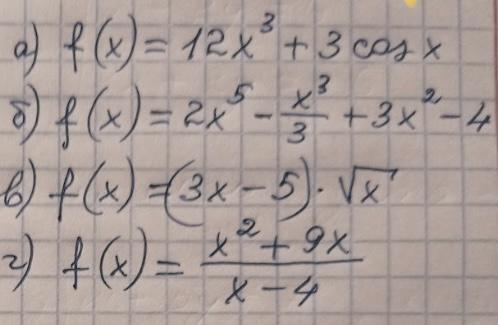 а) f(x) = 12x³ + 3 cos x
б) f(x) = 2x⁵ - x³/3 + 3x² - 4
в) f(x) = (3x - 5) · √x
г) f(x) = (x² + 9x)/(x - 4)